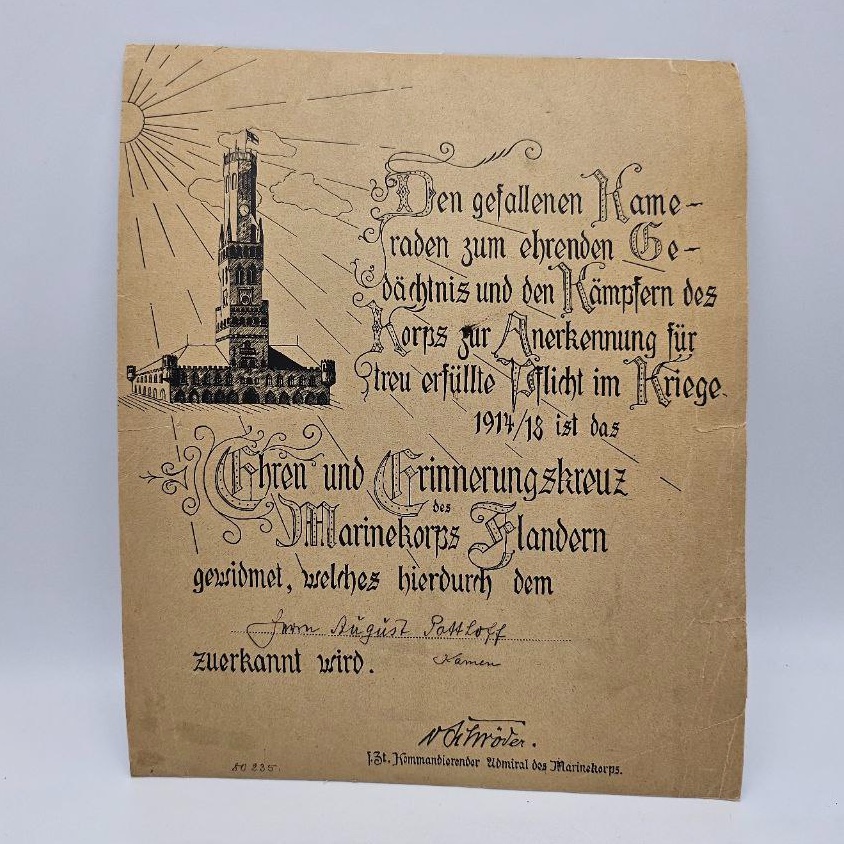 Den gefallenen Kame-
raden zum ehrenden Ge-
dächtnis und den Kämpfern des
Korps zur Anerkennung für
treu erfüllte Pflicht im Kriege
1914/18 ist das
Ehren und Erinnerungskreuz
des
Marinekorps Flandern
gewidmet, welches hierdurch dem
Herrn August Potthoff
zuerkannt wird.
Kamen
v Schröder.
z. Zt. Kommandierender Admiral des Marinekorps.
20 235.